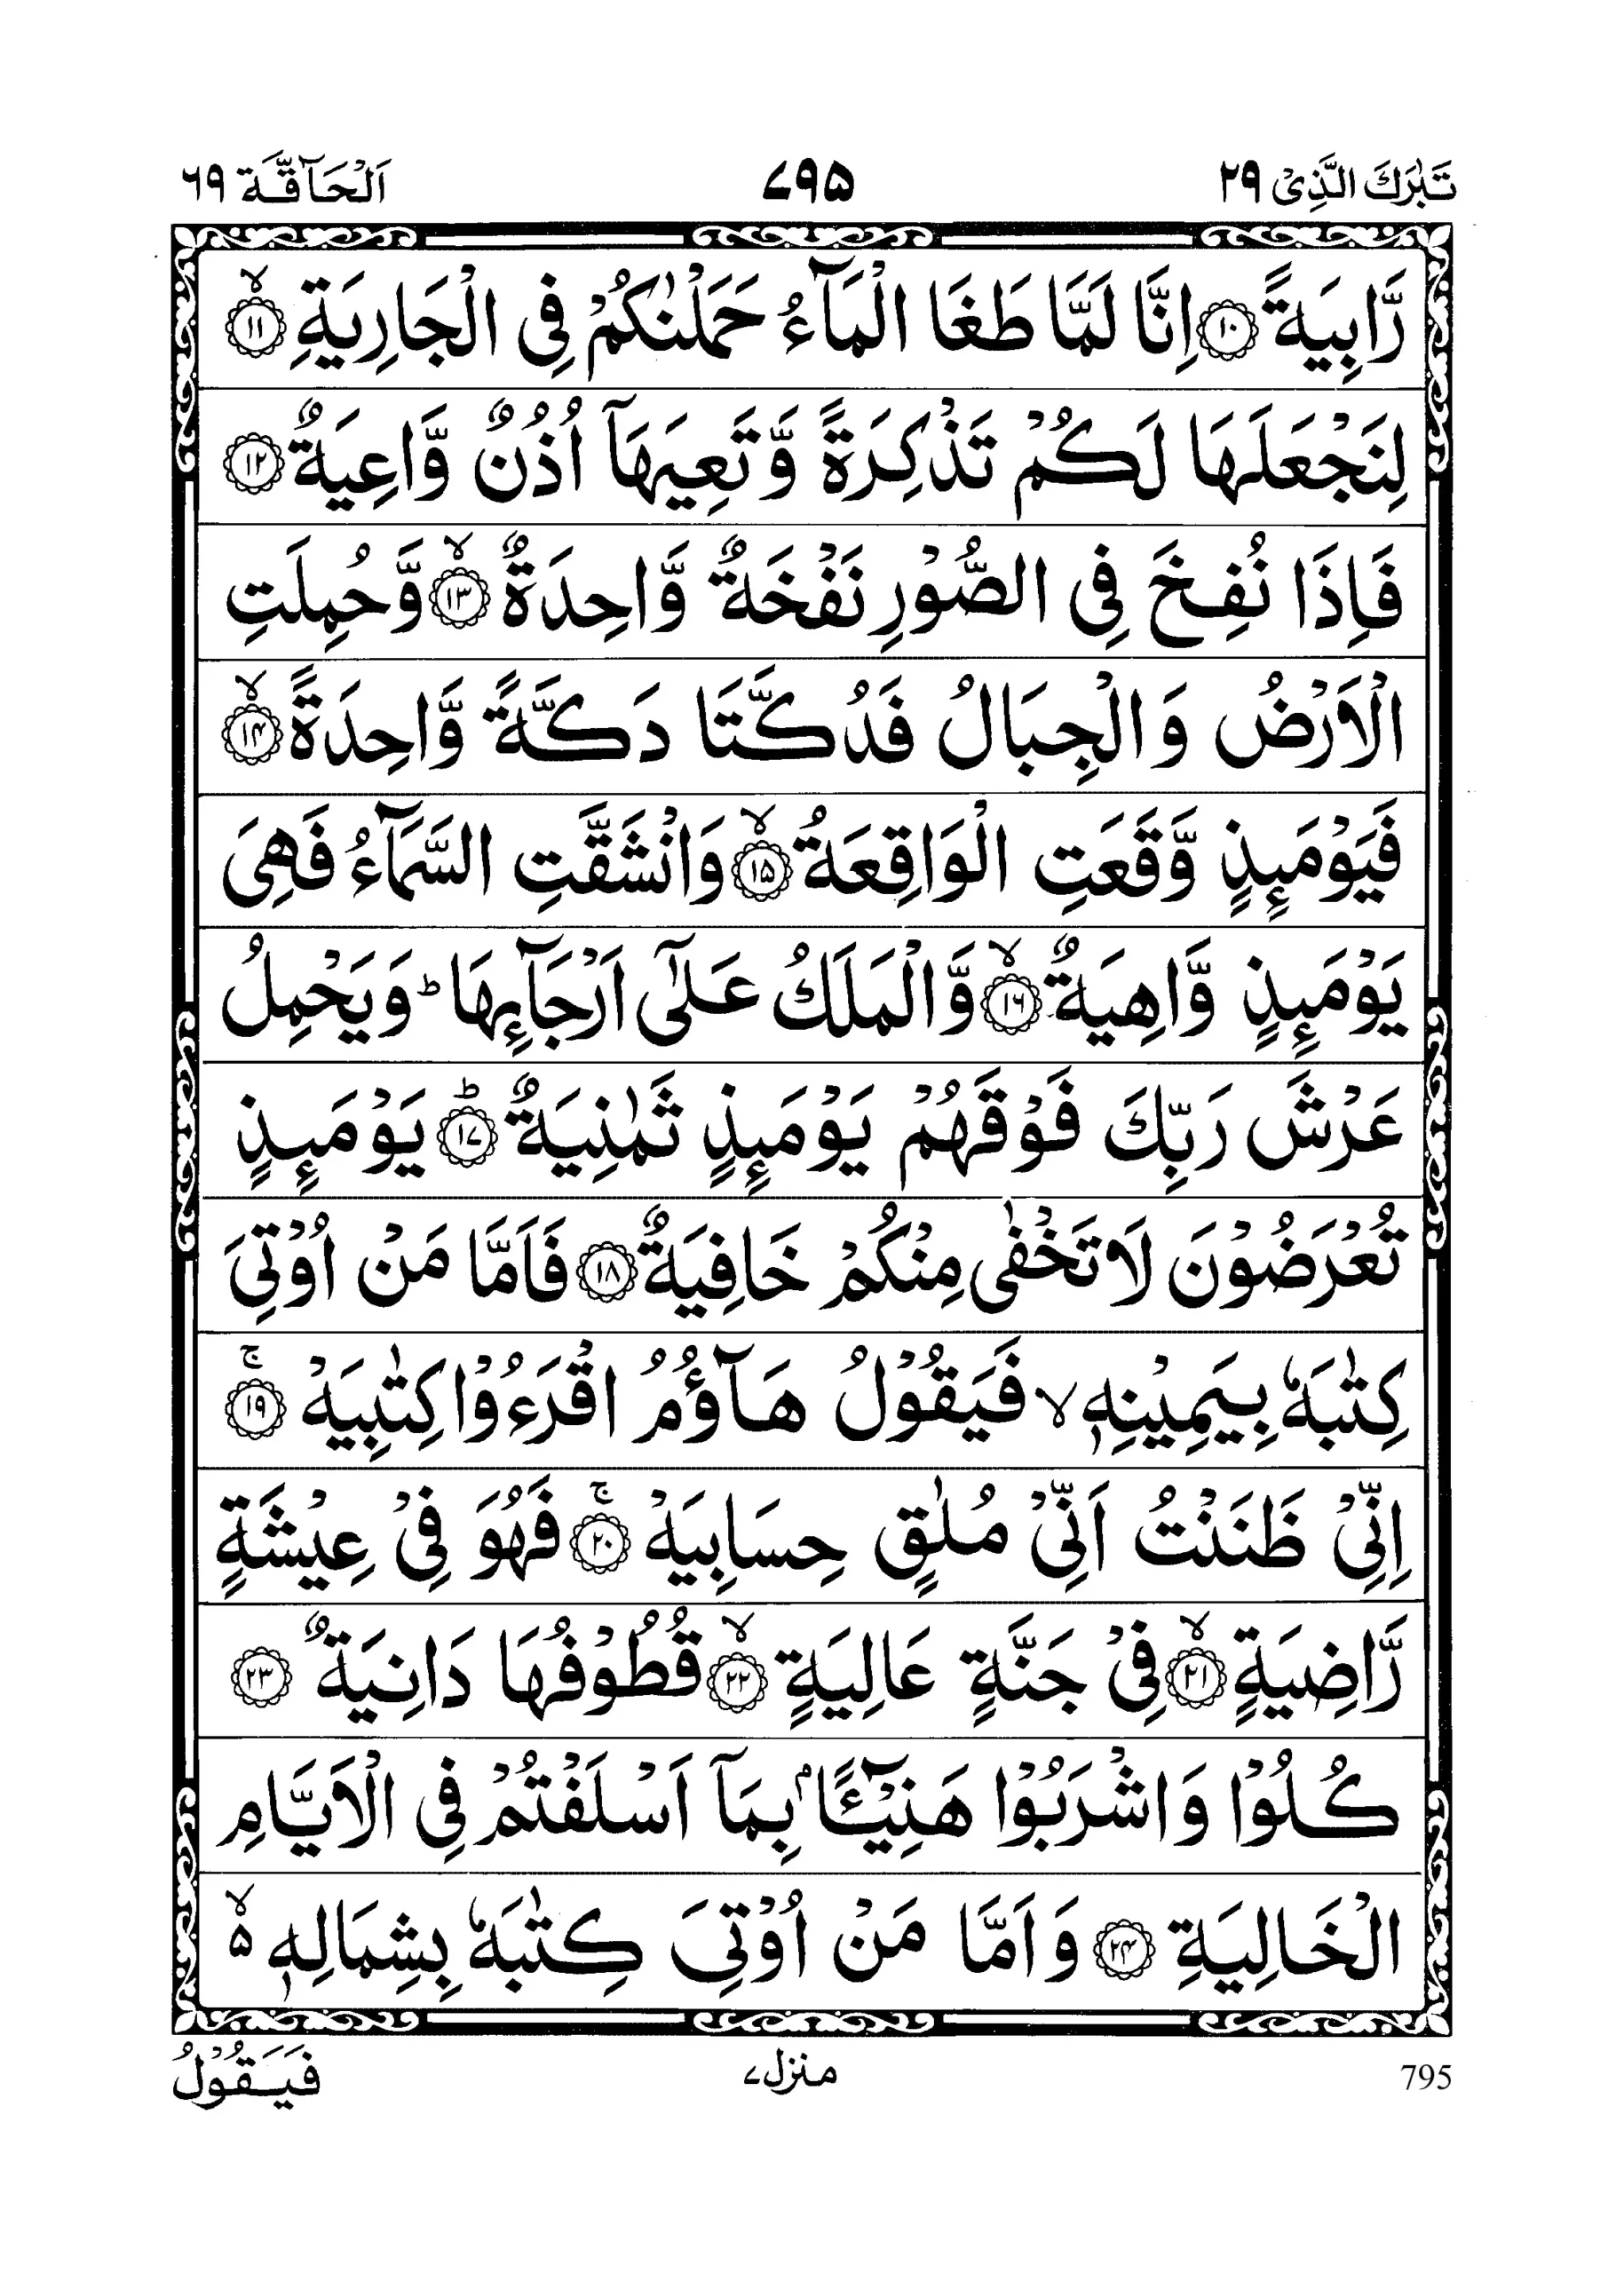 تَبٰرَكَ الَّذِىْ ٢٩
٧٩٥
اَلْحَآقَّة ٦٩
رَّابِيَةً ﴿١٠﴾ اِنَّا لَمَّا طَغَا الْمَآءُ حَمَلْنٰكُمْ فِى الْجَارِيَةِ ۙ﴿١١﴾
لِنَجْعَلَهَا لَكُمْ تَذْكِرَةً وَّتَعِيَهَآ اُذُنٌ وَّاعِيَةٌ ﴿١٢﴾
فَاِذَا نُفِخَ فِى الصُّوْرِ نَفْخَةٌ وَّاحِدَةٌ ۙ﴿١٣﴾ وَّحُمِلَتِ
الْاَرْضُ وَالْجِبَالُ فَدُكَّتَا دَكَّةً وَّاحِدَةً ۙ﴿١٤﴾
فَيَوْمَئِذٍ وَّقَعَتِ الْوَاقِعَةُ ۙ﴿١٥﴾ وَانْشَقَّتِ السَّمَآءُ فَهِىَ
يَوْمَئِذٍ وَّاهِيَةٌ ۙ﴿١٦﴾ وَّالْمَلَكُ عَلٰٓى اَرْجَآئِهَا ؕ وَيَحْمِلُ
عَرْشَ رَبِّكَ فَوْقَهُمْ يَوْمَئِذٍ ثَمٰنِيَةٌ ؕ﴿١٧﴾ يَوْمَئِذٍ
تُعْرَضُوْنَ لَا تَخْفٰى مِنْكُمْ خَافِيَةٌ ﴿١٨﴾ فَاَمَّا مَنْ اُوْتِىَ
كِتٰبَهٗ بِيَمِيْنِهٖ ۙ فَيَقُوْلُ هَآؤُمُ اقْرَءُوْا كِتٰبِيَهْ ۚ﴿١٩﴾
اِنِّىْ ظَنَنْتُ اَنِّىْ مُلٰقٍ حِسَابِيَهْ ۚ﴿٢٠﴾ فَهُوَ فِىْ عِيْشَةٍ
رَّاضِيَةٍ ۙ﴿٢١﴾ فِىْ جَنَّةٍ عَالِيَةٍ ۙ﴿٢٢﴾ قُطُوْفُهَا دَانِيَةٌ ﴿٢٣﴾
كُلُوْا وَاشْرَبُوْا هَنِيْٓئًۢا بِمَآ اَسْلَفْتُمْ فِى الْاَيَّامِ
الْخَالِيَةِ ﴿٢٤﴾ وَاَمَّا مَنْ اُوْتِىَ كِتٰبَهٗ بِشِمَالِهٖ ۙ٥
795
منزل ٧
فَيَقُوْلُ